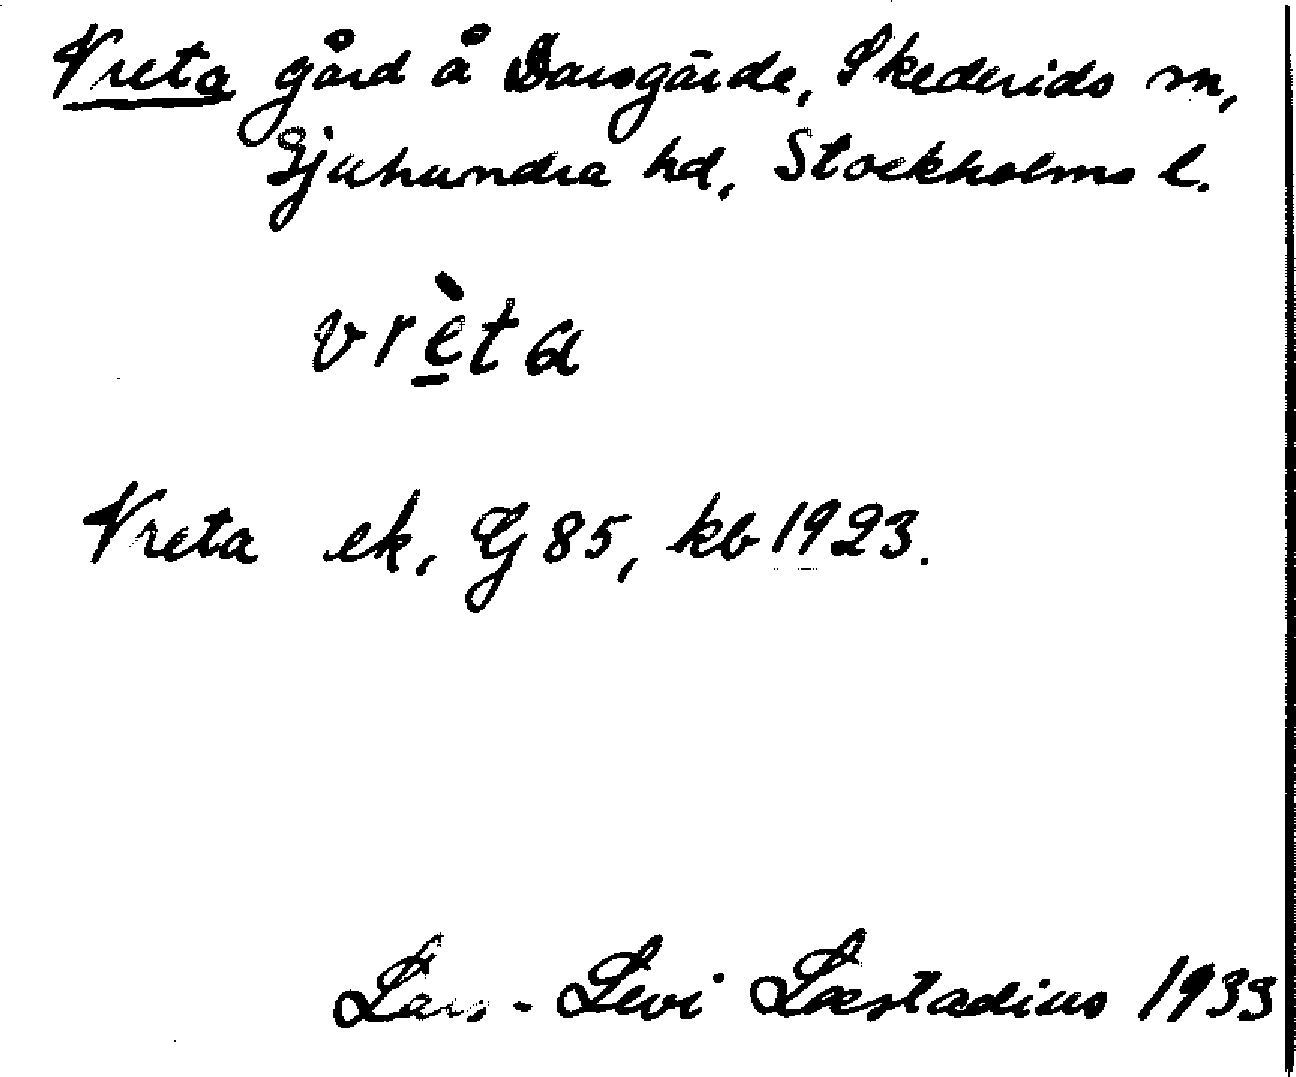 Vreta gård å Darsgärde, Skederids sn,
Sjuhundra hd, Stockholms l.
vrèta
Vreta ek, Gj 85, kb 1923.
Lars-Levi Læstadius 1933